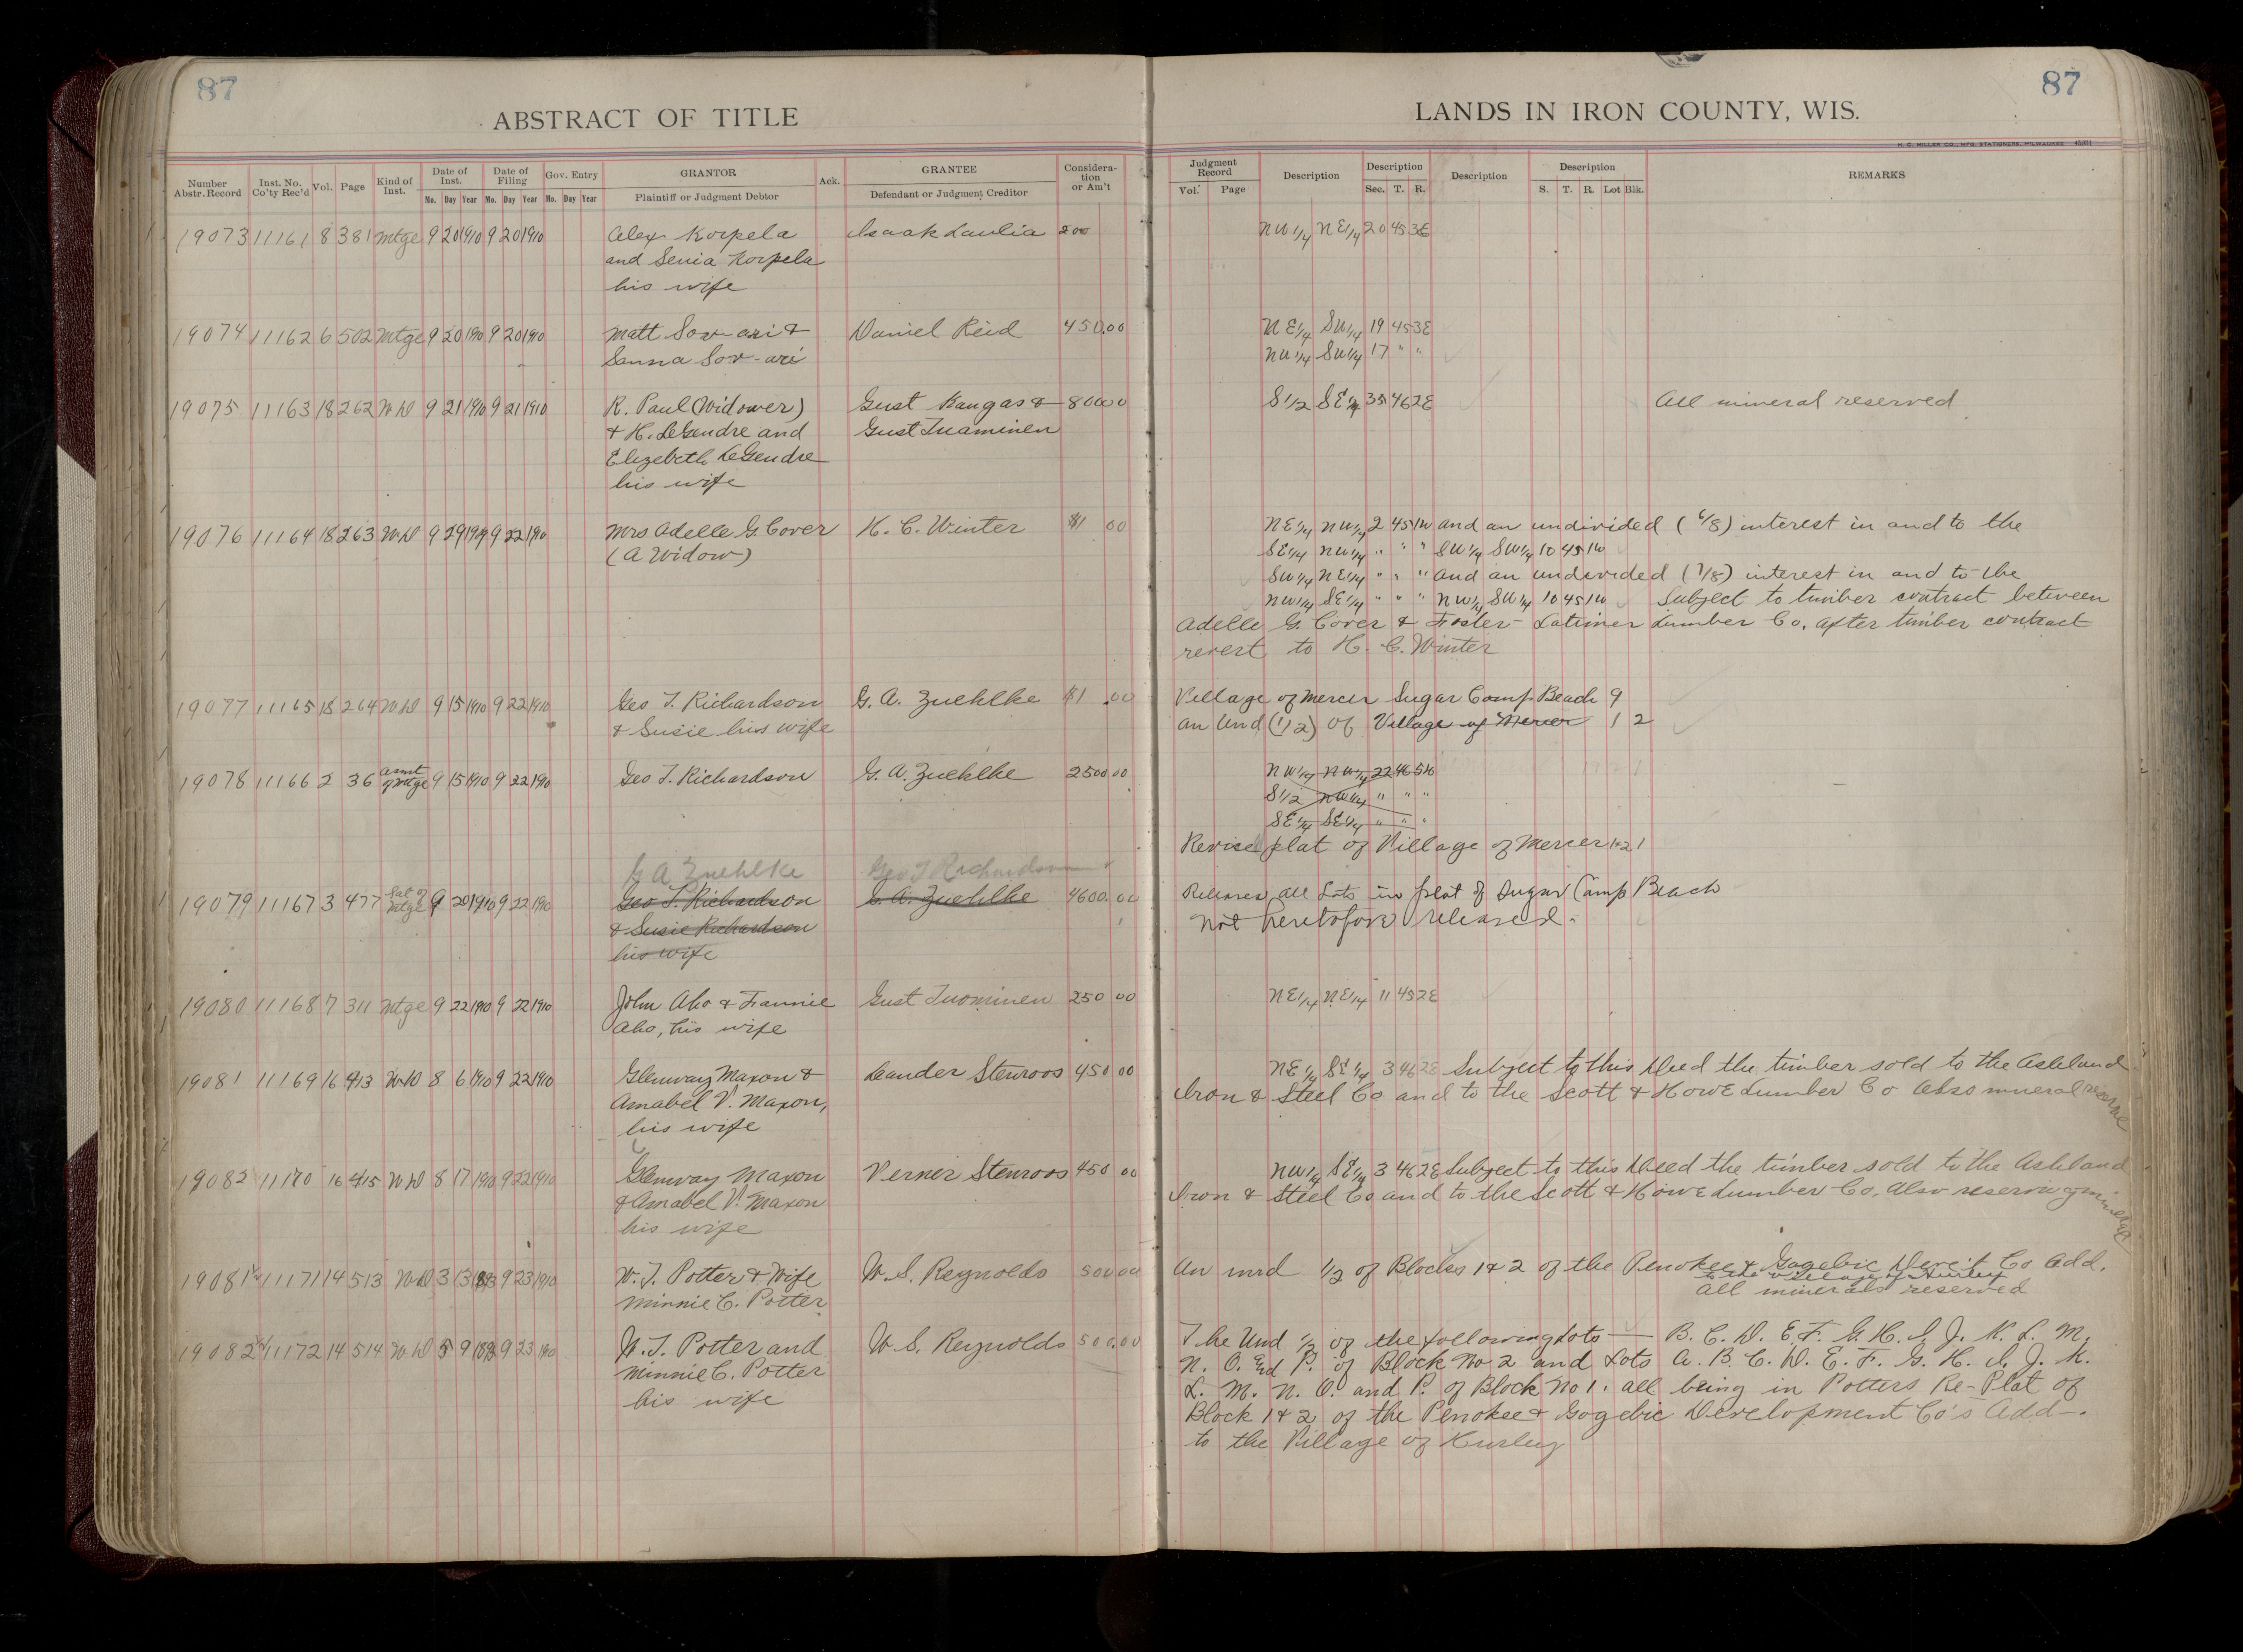 87
ABSTRACT OF TITLE
Number Abstr. Record Inst. No. Co'ty Rec'd Vol. Page Kind of Inst. Date of Inst. Date of Filing Gov. Entry GRANTOR Ack. GRANTEE Considera-tion or Am't
Mo. Day Year Mo. Day Year Mo. Day Year Plaintiff or Judgment Debtor Defendant or Judgment Creditor
19073 11161 8 381 Mtge 9 20 1910 9 20 1910 Alex Korpela Isaak Laulia 800
and Senia Korpela
his wife
19074 11162 6 502 Mtge 9 20 1910 9 20 1910 Matt Sov-ari & Daniel Reid 450.00
Sanna Sov-ari
19075 11163 18 262 W D 9 21 1910 9 21 1910 R. Paul (Widower) Gust Kangas & 800 00
& H. LeGendre and Gust Tuaminen
Elizebeth LeGendre
his wife
19076 11164 18 263 W D 9 29 1909 9 22 1910 Mrs Adelle G. Cover H. C. Winter $1 00
(A Widow)
19077 11165 18 264 W D 9 15 1910 9 22 1910 Geo T. Richardson G. A. Zuehlke $1 .00
& Susie his wife
19078 11166 2 36 Asmt of Mtge 9 15 1910 9 22 1910 Geo T. Richardson G. A. Zuehlke 2500 00
G A Zuehlke Geo T Richardson
19079 11167 3 477 Sat of Mtge 9 20 1910 9 22 1910 Geo T. Richardson G. A. Zuehlke 4600.00
& Susie Richardson
his wife
19080 11168 7 311 Mtge 9 22 1910 9 22 1910 John Aho & Fannie Gust Tuominen 250 00
Aho, his wife
19081 11169 16 413 W D 8 6 1910 9 22 1910 Glenway Maxon & Leander Stenroos 450 00
Annabel V. Maxon,
his wife
19082 11170 16 415 W D 8 17 1910 9 22 1910 Glenway Maxon Verner Stenroos 450 00
& Annabel V. Maxon
his wife
19081½ 11171 14 513 W D 3 13 1893 9 23 1910 W. T. Potter & Wife W. S. Reynolds 500 00
Minnie C. Potter
19082½ 11172 14 514 W D 5 9 1893 9 23 1910 W. T. Potter and W. S. Reynolds 500.00
Minnie C. Potter
his wife
87
LANDS IN IRON COUNTY, WIS.
H. C. MILLER CO., MFG. STATIONERS, MILWAUKEE
Judgment Record Description Description Description Description REMARKS
Vol. Page Sec. T. R. S. T. R. Lot Blk.
NW¼ NE¼ 20 45 3E
NE¼ SW¼ 19 45 3E
NW¼ SW¼ 17 " "
S½ SE¼ 35 46 2E All mineral reserved
NE¼ NW¼ 2 45 1W and an undivided (6/8) interest in and to the
SE¼ NW¼ " " " SW¼ SW¼ 10 45 1W
SW¼ NE¼ " " " and an undivided (7/8) interest in and to the
NW¼ SE¼ " " " NW¼ SW¼ 10 45 1W Subject to timber contract between
Adelle G. Cover & Foster-Latimer Lumber Co. After timber contract
revert to H. C. Winter
Village of Mercer Sugar Camp Beach 9
an Und (1/2) of Village of Mercer 1 2
NW¼ NW¼ 22 46 5W
S½ NW¼ " " "
SE¼ SE¼ " " "
Revised plat of Village of Mercer 1&2 1
Releases all Lots in plat of Sugar Camp Beach
not heretofore released.
NE¼ NE¼ 11 45 2E
NE¼ SE¼ 3 46 2E Subject to this Deed the timber sold to the Ashland
Iron & Steel Co and to the Scott & Howe Lumber Co Also mineral reserve
NW¼ SE¼ 3 46 2E Subject to this Deed the timber sold to the Ashland
Iron & Steel Co and to the Scott & Howe Lumber Co, Also reserving mineral
An und ½ of Blocks 1 & 2 of the Penokee & Gogebic Deve't Co Add.
to the Village of Hurley
all minerals reserved
The Und ½ of the following Lots — B. C. D. E. F. G. H. I. J. K. L. M.
N. O. and P. of Block No 2 and Lots A. B. C. D. E. F. G. H. I. J. K.
L. M. N. O. and P. of Block No 1. all being in Potters Re-Plat of
Block 1 & 2 of the Penokee & Gogebic Development Co's Add-.
to the Village of Hurley